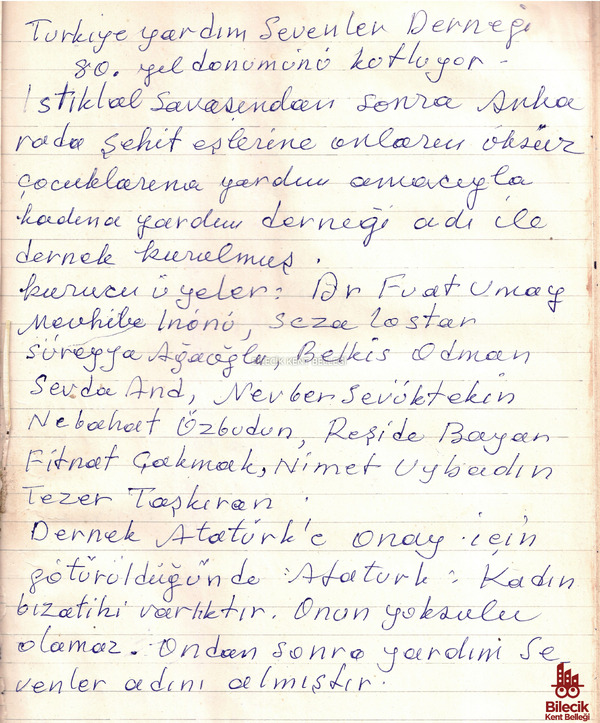 Türkiye yardım Sevenler Derneği
80. yıl dönümünü kutluyor -
İstiklal Savaşından sonra Anka
rada Şehit eşlerine onların öksüz
çocuklarına yardım amacıyla
kadına yardım derneği adı ile
dernek kurulmuş.
kurucu üyeler: Dr Fuat Umay
Mevhibe İnönü, Seza Lostar
Süreyya Ağaoğlu, Belkis Odman
Sevda And, Nevber Sevüktekin
Nebahat Özbudun, Reşide Bayar
Fitnat Çakmak, Nimet Uybadın
Tezer Taşkıran.
Dernek Atatürk'e onay için
götürüldüğünde : Atatürk : Kadın
bizatihi varlıktır. Onun yoksulu
olamaz. Ondan sonra yardım Se
venler adını almıştır.
BİLECİK KENT BELLEĞİ
Bilecik
Kent Belleği